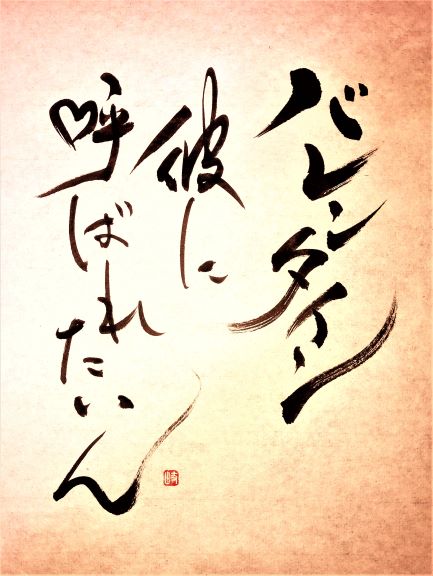 バレンタイン
彼に
呼ばれたいん